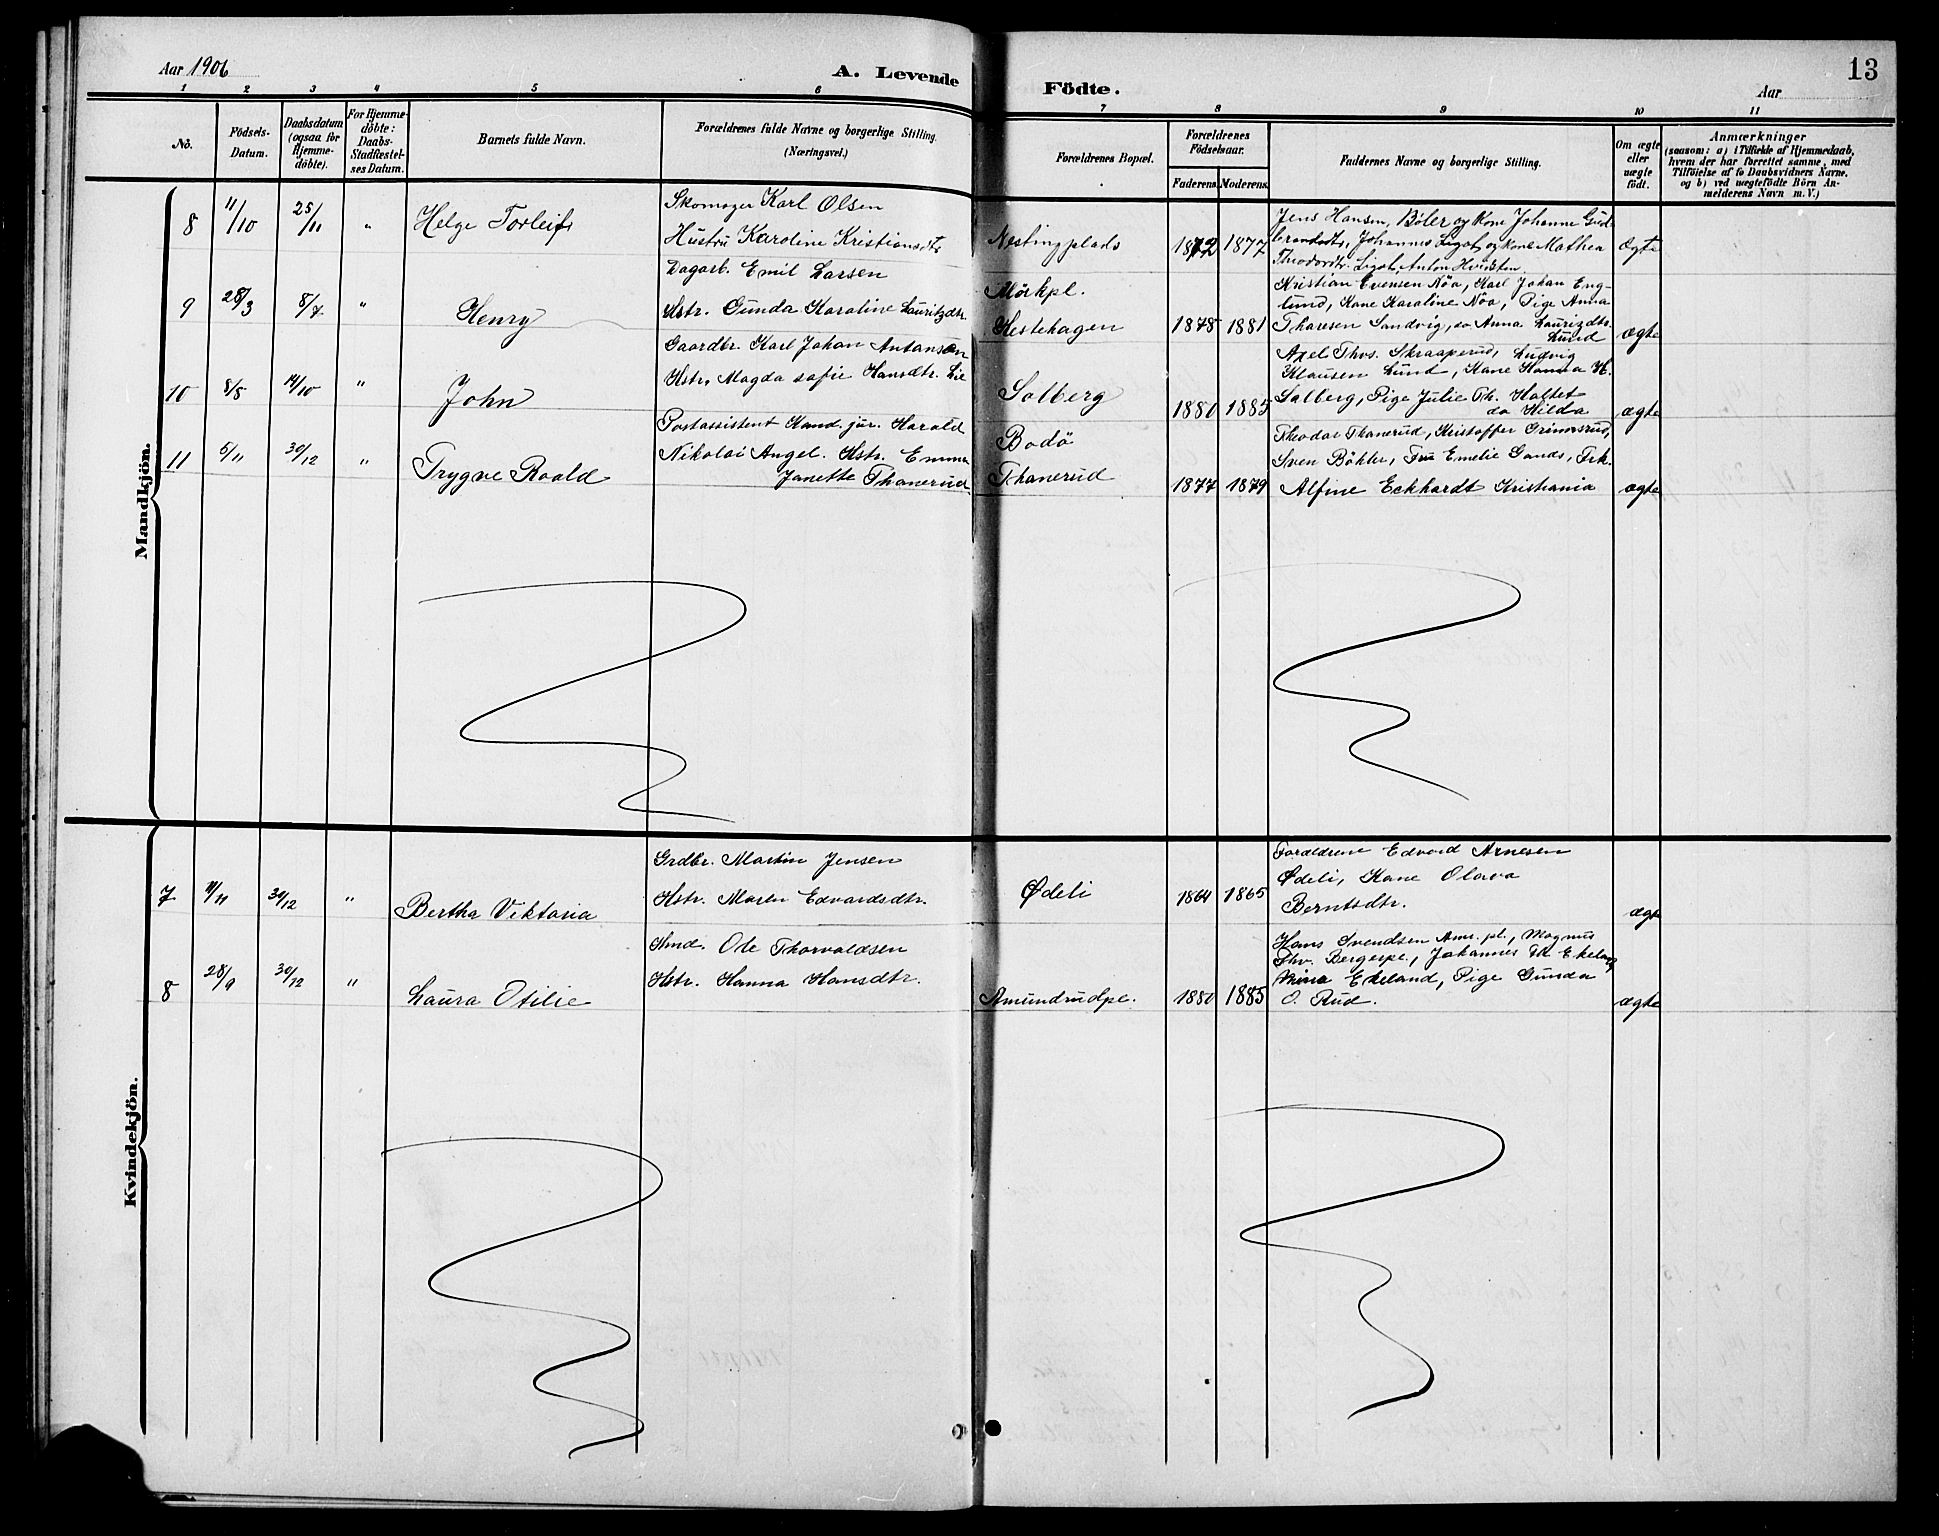 Aar 1906
A. Levende
Födte.
Aar
13
1 2 3 4 5 6 7 8 9 10 11
No.
Födsels-
Datum.
Daabsdatum
(ogsaa for
Hjemme-
döbte).
For Hjemme-
döbte:
Daabs-
Stadfæstel-
ses Datum.
Barnets fulde Navn.
Forældrenes fulde Navne og borgerlige Stilling.
(Næringsvei.)
Forældrenes Bopæl.
Forældrenes
Födselsaar.
Faderens.
Moderens.
Faddernes Navne og borgerlige Stilling.
Om ægte
eller
uægte
födt.
Anmærkninger
(saasom: a) i Tilfælde af Hjemmedaab,
hvem der har forrettet samme, med
Tilföielse af to Daabsvidners Navne,
og b) ved uægtefödte Börn An-
melderens Navn m. V.)
Mandkjön.
8 11/10 25/11 " Helge Torleif
Skomager Karl Olsen
Hustru Karoline Kristiansdtr
Nestingplads
1872 1877
Jens Hansen, Böler og Kone Johanne Gud-
brandsdtr, Johannes Ligot, og Kone Mathea
Theodordtr. Ligot, Anton Hvidsten
Ægte
9 28/3 8/7 " Henry
Dagarb. Emil Larsen
Hstr. Gunda Karoline Lauritzdtr.
Mörkpl.
Hestehagen
1878 1881
Kristian Evensen Nöa, Karl Johan Eng-
lund, Kone Karoline Nöa, Pige Anna
Thoresen Sandvig, do Anna Lauritzdtr.
Lund
ægte
10 8/5 14/10 " John
Gaardbr. Karl Johan Antonsen
Hstr. Magda Sofie Hansdtr. Lie
Solberg
1880 1885
Axel Thvs. Skraaperud, Ludvig
Klausen Lund, Kone Hanna H.
Solberg, Pige Julie Th. Holtet
do Hilda
ægte
11 5/11 30/12 " Trygve Roald
Postassistent Kand. jur. Harald
Nikolai Angel. Hstr. Emma
Janette Thanerud
Bodö
Thanerud
1877 1879
Theodor Thanerud, Kristoffer Grimsrud,
Sven Böhler, Fru Emelie Gands, Frk.
Alfine Eckhardt Kristiania
ægte
Kvindekjön.
7 11/11 30/12 " Bertha Viktoria
Grdbr. Martin Jensen
Hstr. Maren Edvardsdtr.
Ødeli
1864 1865
Forældrene Edvard Arnesen
Ødeli, Kone Olava
Berntsdtr.
ægte
8 28/9 30/12 " Laura Otilie
Smd. Ole Thorvaldsen
Hstr. Hanna Hansdtr.
Amundrudpl.
1880 1885
Hans Svendsen Am. pl., Magnus
Thv. Bergespl., Johannes Ed. Ekeland
Mina Ekeland, Pige Gunda
O. Rud.
ægte